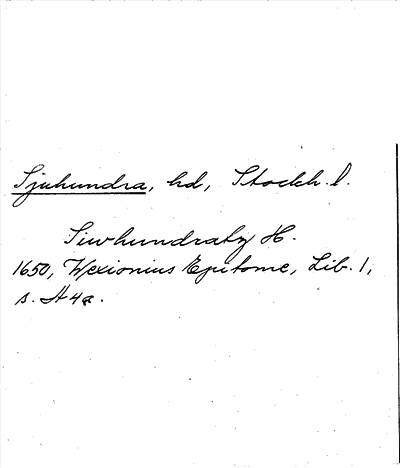 Sjuhundra, hd, Stockh. l.
Siwhundratz H.
1650, Wexionius Epitome, Lib. 1,
s. H4a.